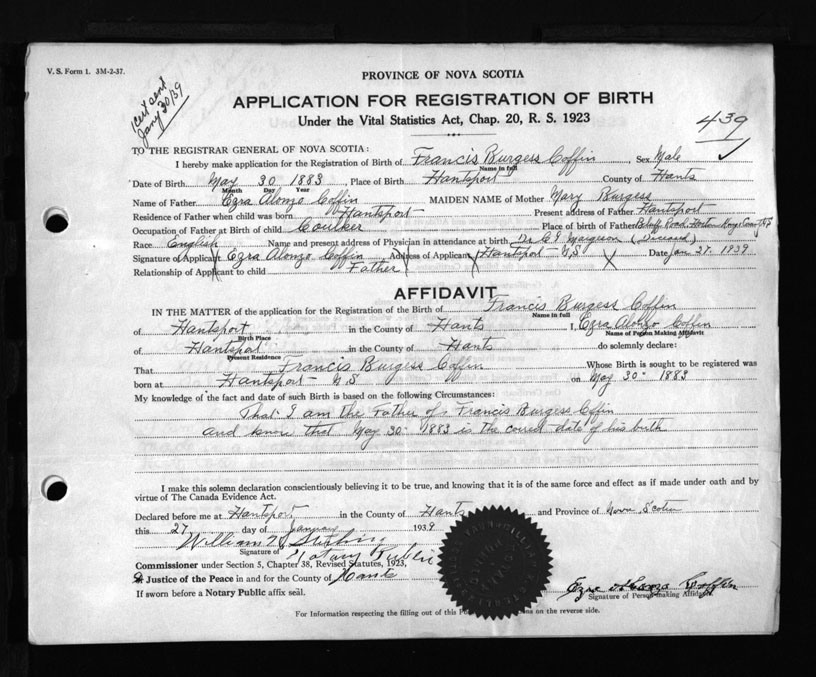 V. S. Form 1. 3M-2-37.
Cert sent
Jany 30/39
PROVINCE OF NOVA SCOTIA
APPLICATION FOR REGISTRATION OF BIRTH
Under the Vital Statistics Act, Chap. 20, R. S. 1923
439
TO THE REGISTRAR GENERAL OF NOVA SCOTIA:
I hereby make application for the Registration of Birth of Francis Burgess Coffin, Sex Male
Name in full
Date of Birth May 30 1883, Place of Birth Hantsport County of Hants
Month Day Year
Name of Father Ezra Alonzo Coffin MAIDEN NAME of Mother Mary Burgess
Residence of Father when child was born Hantsport Present address of Father Hantsport
Occupation of Father at Birth of child Caulker Place of birth of Father Road, Horton Kings County N.S
Race English Name and present address of Physician in attendance at birth Dr Margeson (Deceased)
Signature of Applicant Ezra Alonzo Coffin Address of Applicant Hantsport N.S Date Jan 27. 1939
Relationship of Applicant to child Father
AFFIDAVIT
IN THE MATTER of the application for the Registration of the Birth of Francis Burgess Coffin
Name in full
of Hantsport in the County of Hants I, Ezra Alonzo Coffin
Birth Place Name of Person Making Affidavit
of Hantsport in the County of Hants do solemnly declare:
Present Residence
That Francis Burgess Coffin Whose Birth is sought to be registered was
born at Hantsport N.S on May 30 1883
My knowledge of the fact and date of such Birth is based on the following Circumstances:
That I am the Father of Francis Burgess Coffin
and know that May 30 1883 is the correct date of his birth
I make this solemn declaration conscientiously believing it to be true, and knowing that it is of the same force and effect as if made under oath and by
virtue of The Canada Evidence Act.
Declared before me at Hantsport in the County of Hants and Province of Nova Scotia
this 27 day of January 1939
William
Signature of Notary Public
Commissioner under Section 5, Chapter 38, Revised Statutes, 1923,
Justice of the Peace in and for the County of Hants
If sworn before a Notary Public affix seal.
Ezra Alonzo Coffin
Signature of Person making Affidavit
For Information respecting the filling out of this on the reverse side.